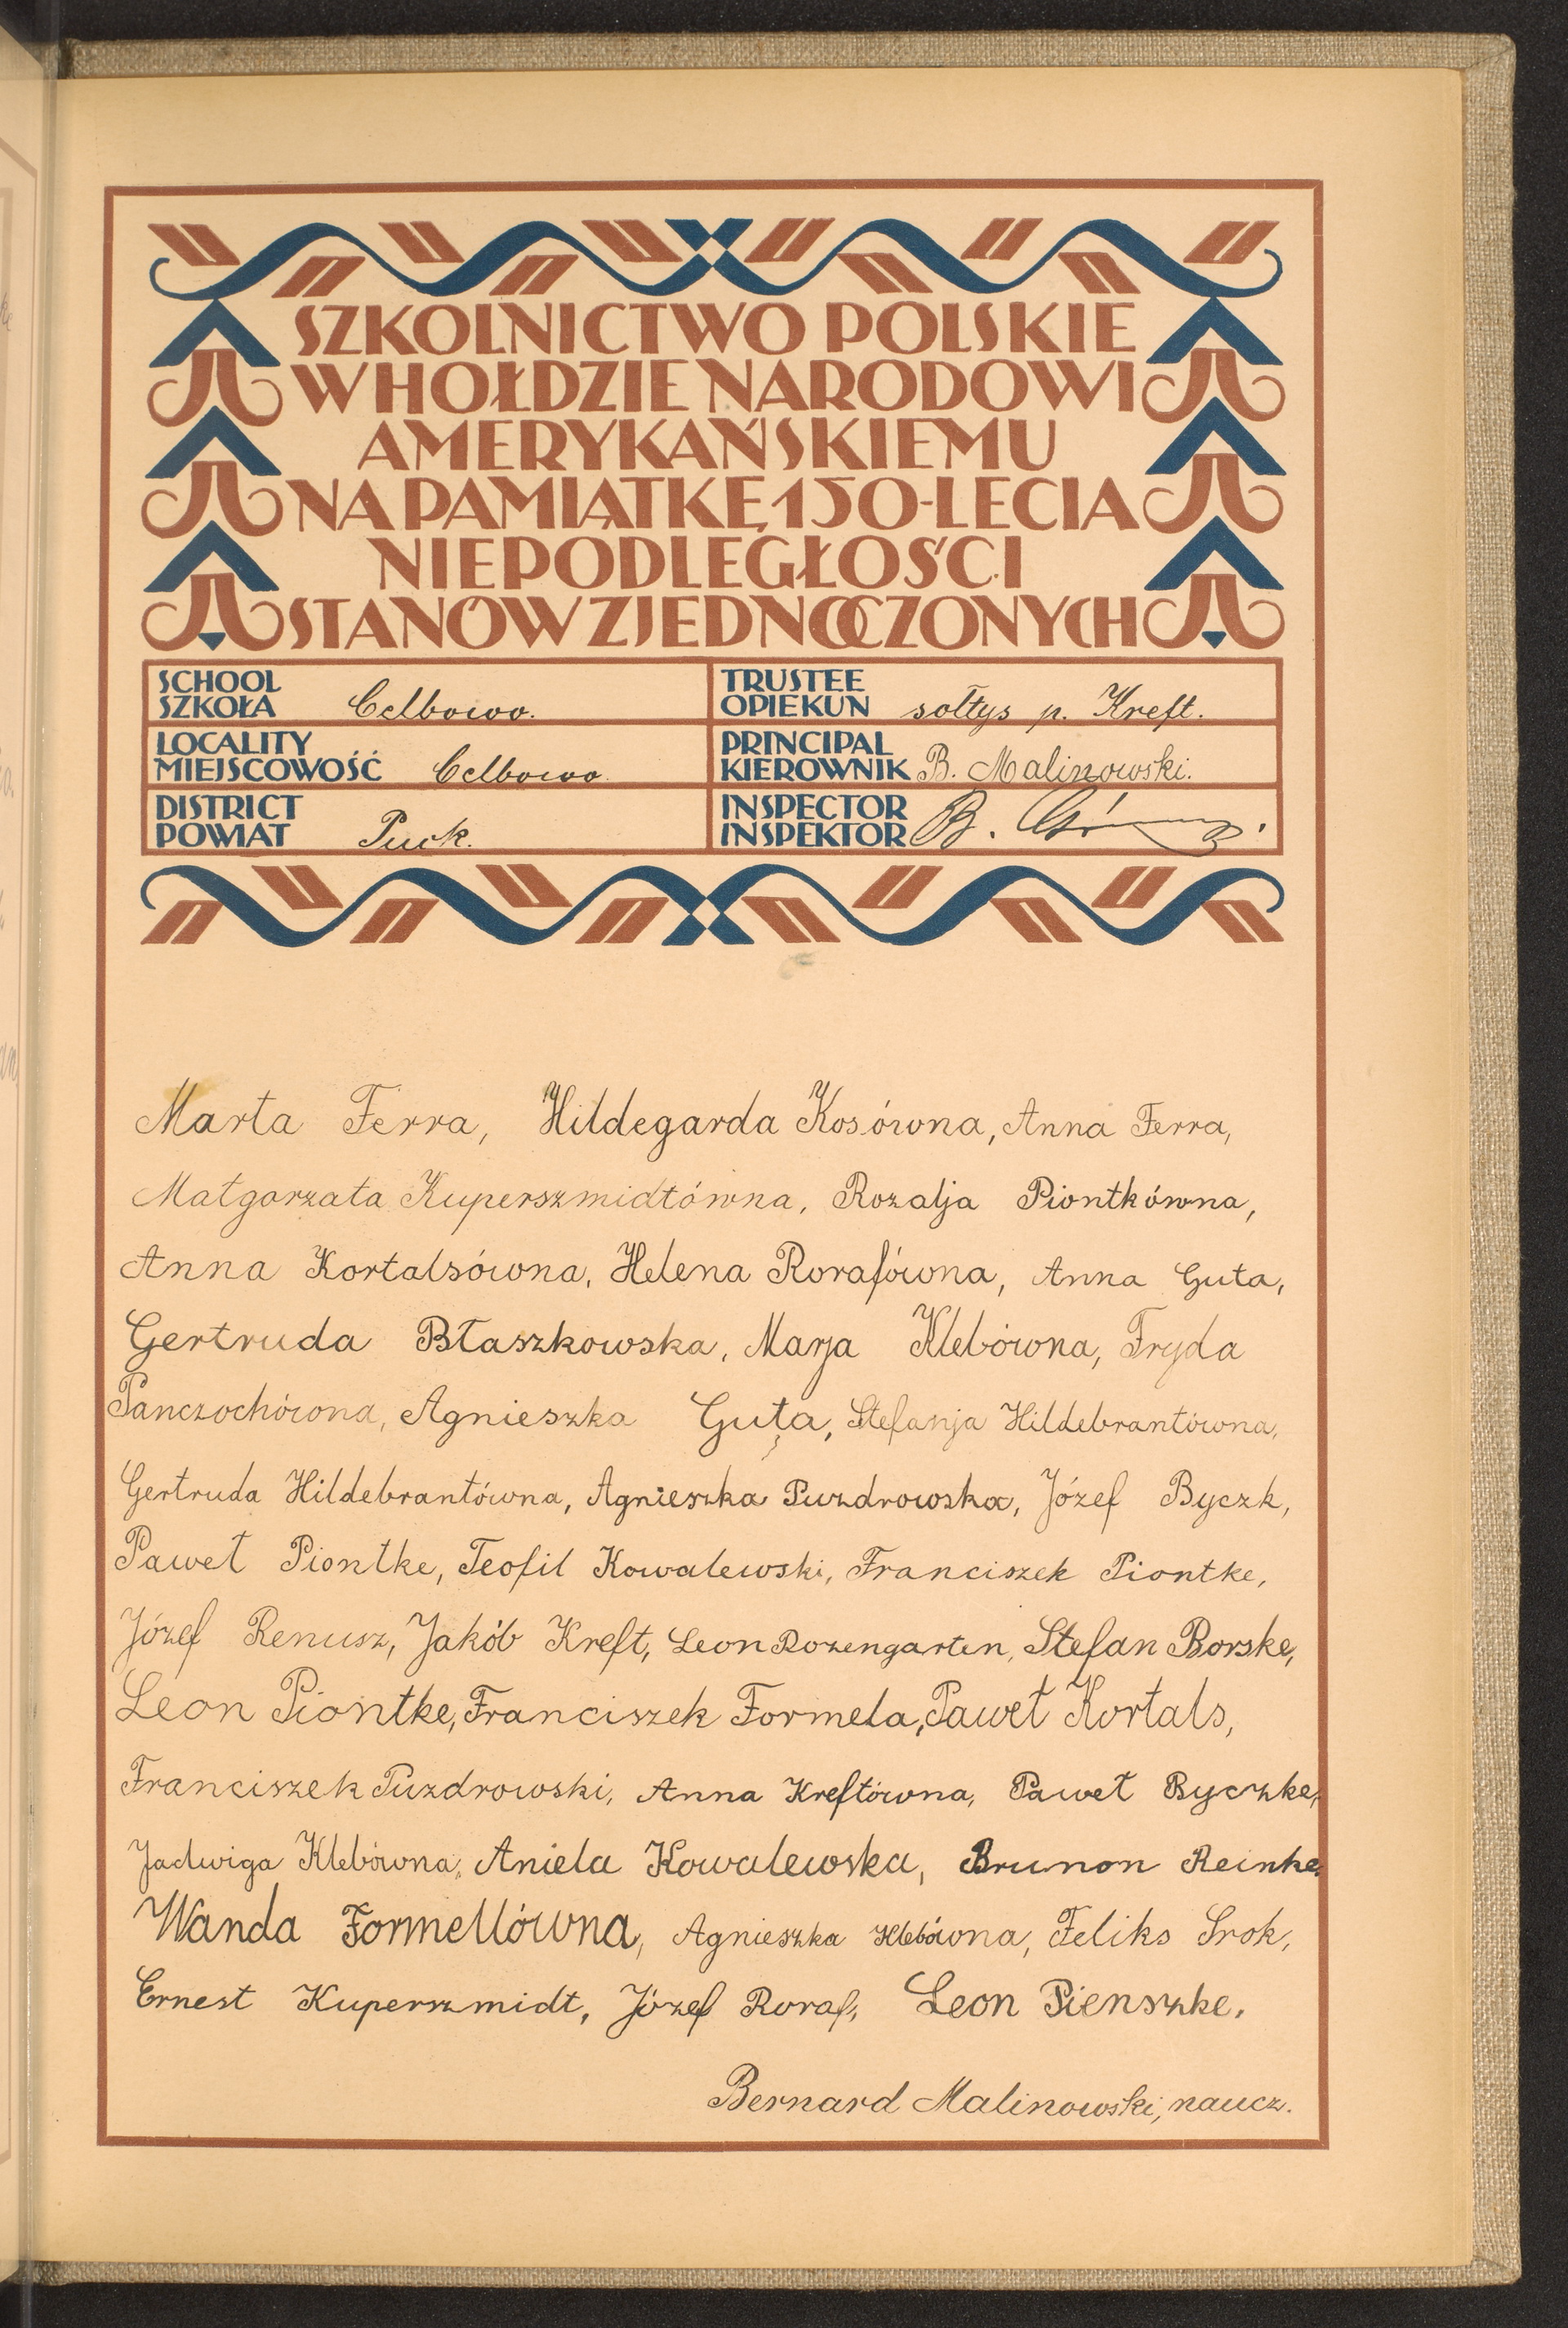 SZKOLNICTWO POLSKIE
W HOŁDZIE NARODOWI
AMERYKAŃSKIEMU
NA PAMIĄTKĘ 150-LECIA
NIEPODLEGŁOŚCI
STANÓW ZJEDNOCZONYCH
SCHOOL
SZKOŁA Celbowo.
TRUSTEE
OPIEKUN sołtys p. Kreft.
LOCALITY
MIEJSCOWOŚĆ Celbowo
PRINCIPAL
KIEROWNIK B. Malinowski.
DISTRICT
POWIAT Puck.
INSPECTOR
INSPEKTOR B.
Marta Ferra, Hildegarda Kosówna, Anna Ferra,
Małgorzata Kuperszmidtówna, Rozalja Piontkówna,
Anna Kortalsówna, Helena Rorafówna, Anna Guta,
Gertruda Błaszkowska, Marja Klebówna, Fryda
Panczochówna, Agnieszka Guta, Stefanja Hildebrantówna,
Gertruda Hildebrantówna, Agnieszka Puzdrowska, Józef Byczk,
Paweł Piontke, Teofil Kowalewski, Franciszek Piontke,
Józef Renusz, Jakób Kreft, Leon Rozengarten, Stefan Borske,
Leon Piontke, Franciszek Formela, Paweł Kortals,
Franciszek Puzdrowski, Anna Kreftówna, Paweł Byczke,
Jadwiga Klebówna, Aniela Kowalewska, Brunon Reinke,
Wanda Formellówna, Agnieszka Klebówna, Feliks Srok,
Ernest Kuperszmidt, Józef Roraf, Leon Pienszke,
Bernard Malinowski, naucz.